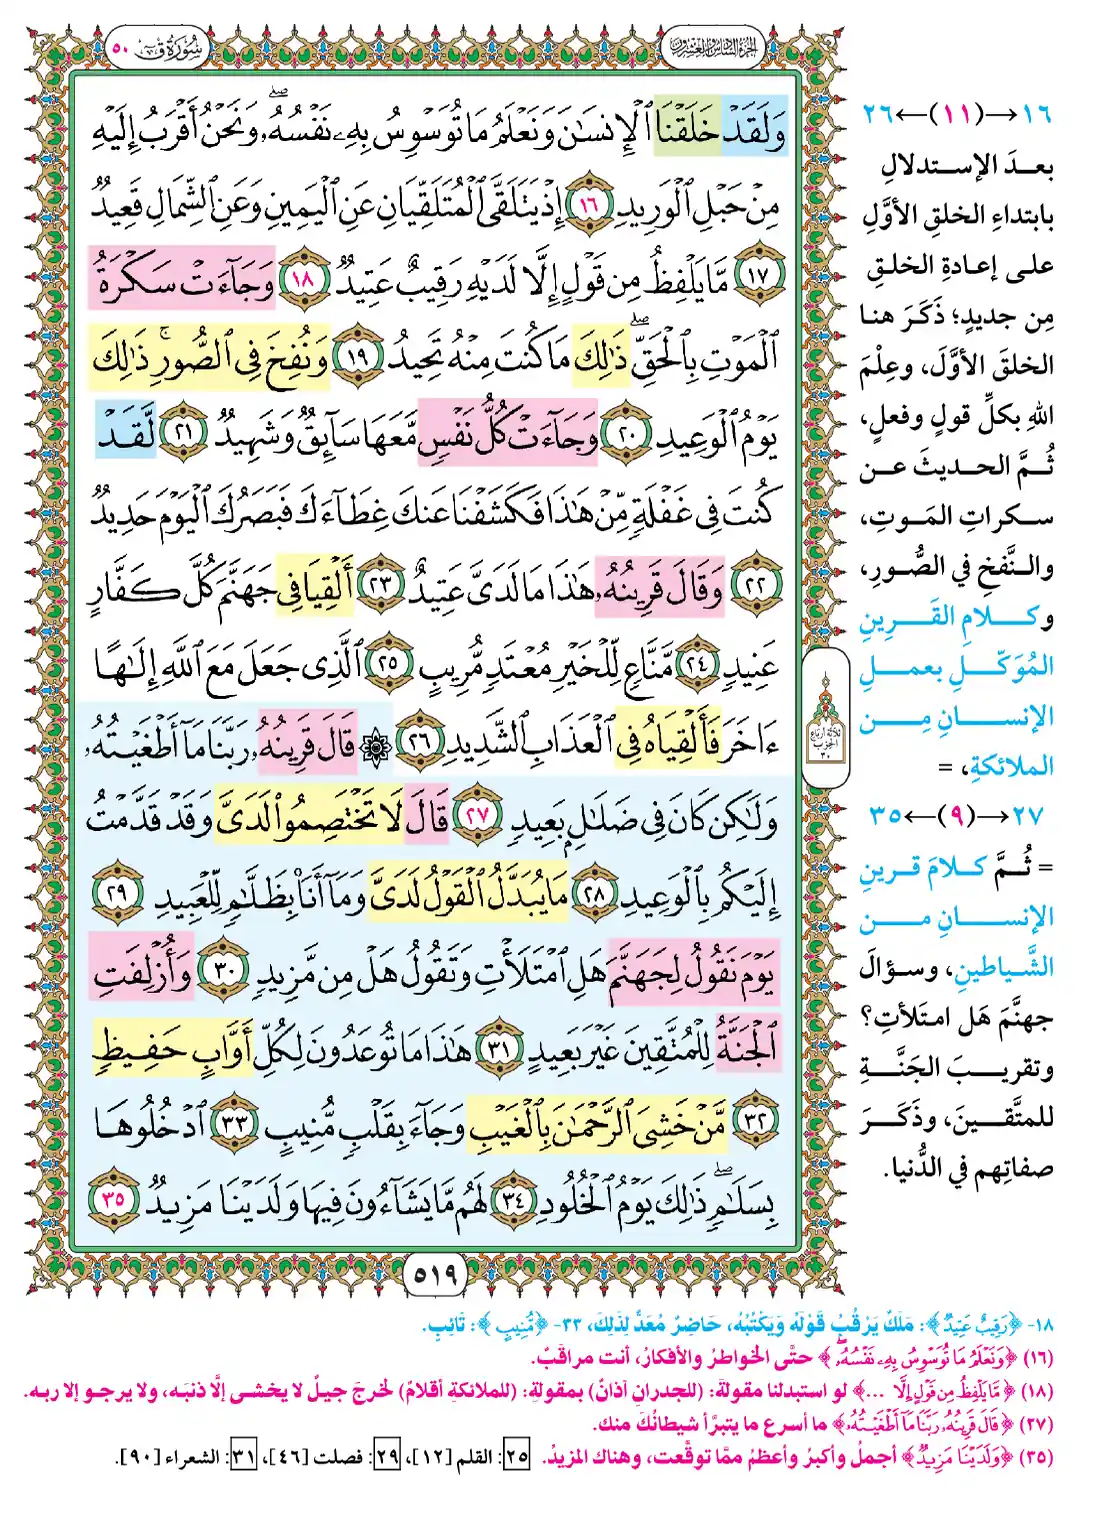 سُورَةُ ق ٥٠
الجزء السادس والعشرون
وَلَقَدْ خَلَقْنَا ٱلْإِنسَٰنَ وَنَعْلَمُ مَا تُوَسْوِسُ بِهِۦ نَفْسُهُۥۖ وَنَحْنُ أَقْرَبُ إِلَيْهِ
مِنْ حَبْلِ ٱلْوَرِيدِ ١٦ إِذْ يَتَلَقَّى ٱلْمُتَلَقِّيَانِ عَنِ ٱلْيَمِينِ وَعَنِ ٱلشِّمَالِ قَعِيدٌ
١٧ مَّا يَلْفِظُ مِن قَوْلٍ إِلَّا لَدَيْهِ رَقِيبٌ عَتِيدٌ ١٨ وَجَآءَتْ سَكْرَةُ
ٱلْمَوْتِ بِٱلْحَقِّۖ ذَٰلِكَ مَا كُنتَ مِنْهُ تَحِيدُ ١٩ وَنُفِخَ فِى ٱلصُّورِۚ ذَٰلِكَ
يَوْمُ ٱلْوَعِيدِ ٢٠ وَجَآءَتْ كُلُّ نَفْسٍ مَّعَهَا سَآئِقٌ وَشَهِيدٌ ٢١ لَّقَدْ
كُنتَ فِى غَفْلَةٍ مِّنْ هَٰذَا فَكَشَفْنَا عَنكَ غِطَآءَكَ فَبَصَرُكَ ٱلْيَوْمَ حَدِيدٌ
٢٢ وَقَالَ قَرِينُهُۥ هَٰذَا مَا لَدَىَّ عَتِيدٌ ٢٣ أَلْقِيَا فِى جَهَنَّمَ كُلَّ كَفَّارٍ
عَنِيدٍ ٢٤ مَّنَّاعٍ لِّلْخَيْرِ مُعْتَدٍ مُّرِيبٍ ٢٥ ٱلَّذِى جَعَلَ مَعَ ٱللَّهِ إِلَٰهًا
ءَاخَرَ فَأَلْقِيَاهُ فِى ٱلْعَذَابِ ٱلشَّدِيدِ ٢٦ ۞ قَالَ قَرِينُهُۥ رَبَّنَا مَآ أَطْغَيْتُهُۥ
وَلَٰكِن كَانَ فِى ضَلَٰلٍۭ بَعِيدٍ ٢٧ قَالَ لَا تَخْتَصِمُوا۟ لَدَىَّ وَقَدْ قَدَّمْتُ
إِلَيْكُم بِٱلْوَعِيدِ ٢٨ مَا يُبَدَّلُ ٱلْقَوْلُ لَدَىَّ وَمَآ أَنَا۠ بِظَلَّٰمٍ لِّلْعَبِيدِ ٢٩
يَوْمَ نَقُولُ لِجَهَنَّمَ هَلِ ٱمْتَلَأْتِ وَتَقُولُ هَلْ مِن مَّزِيدٍ ٣٠ وَأُزْلِفَتِ
ٱلْجَنَّةُ لِلْمُتَّقِينَ غَيْرَ بَعِيدٍ ٣١ هَٰذَا مَا تُوعَدُونَ لِكُلِّ أَوَّابٍ حَفِيظٍ
٣٢ مَّنْ خَشِىَ ٱلرَّحْمَٰنَ بِٱلْغَيْبِ وَجَآءَ بِقَلْبٍ مُّنِيبٍ ٣٣ ٱدْخُلُوهَا
بِسَلَٰمٍۖ ذَٰلِكَ يَوْمُ ٱلْخُلُودِ ٣٤ لَهُم مَّا يَشَآءُونَ فِيهَا وَلَدَيْنَا مَزِيدٌ ٣٥
٥١٩
ثلاثة أرباع
الحزب
١٦→(١١)←٢٦
بعدَ الإستدلالِ
بابتداءِ الخلقِ الأوَّلِ
على إعادةِ الخلقِ
مِن جديدٍ؛ ذَكَرَ هنا
الخلقَ الأوَّلَ، وعِلْمَ
اللهِ بكلِّ قولٍ وفعلٍ،
ثُمَّ الحديثَ عن
سكراتِ المَوتِ،
والنَّفخِ في الصُّورِ،
وكلامِ القَرِينِ
المُوَكَّلِ بعملِ
الإنسانِ مِن
الملائكةِ، =
٢٧→(٩)←٣٥
= ثُمَّ كلامَ قرينِ
الإنسانِ من
الشَّياطينِ، وسؤالَ
جهنَّمَ هَل امتَلأتِ؟
وتقريبَ الجَنَّةِ
للمتَّقينَ، وذَكَرَ
صفاتِهم في الدُّنيا.
١٨- ﴿رَقِيبٌ عَتِيدٌ﴾: مَلَكٌ يَرْقُبُ قَوْلَهُ وَيَكْتُبُهُ، حَاضِرٌ مُعَدٌّ لِذَلِكَ، ٣٣- ﴿مُّنِيبٍ﴾: تَائِبٍ.
(١٦) ﴿وَنَعْلَمُ مَا تُوَسْوِسُ بِهِۦ نَفْسُهُۥۖ﴾ حتَّى الخواطرُ والأفكارُ، أنت مراقَبٌ.
(١٨) ﴿مَّا يَلْفِظُ مِن قَوْلٍ إِلَّا ...﴾ لو استبدلنا مقولةَ: (للجدرانِ آذانٌ) بمقولةِ: (للملائكةِ أقلامٌ) لخرجَ جيلٌ لا يخشى إلَّا ذنبَه، ولا يرجو إلا ربه.
(٢٧) ﴿قَالَ قَرِينُهُۥ رَبَّنَا مَآ أَطْغَيْتُهُۥ﴾ ما أسرع ما يتبرَّأ شيطانُكَ منك.
(٣٥) ﴿وَلَدَيْنَا مَزِيدٌ﴾ أجملُ وأكبرُ وأعظمُ ممَّا توقَّعت، وهناك المزيدُ. ٢٥: القلم [١٢]، ٢٩: فصلت [٤٦]، ٣١: الشعراء [٩٠].